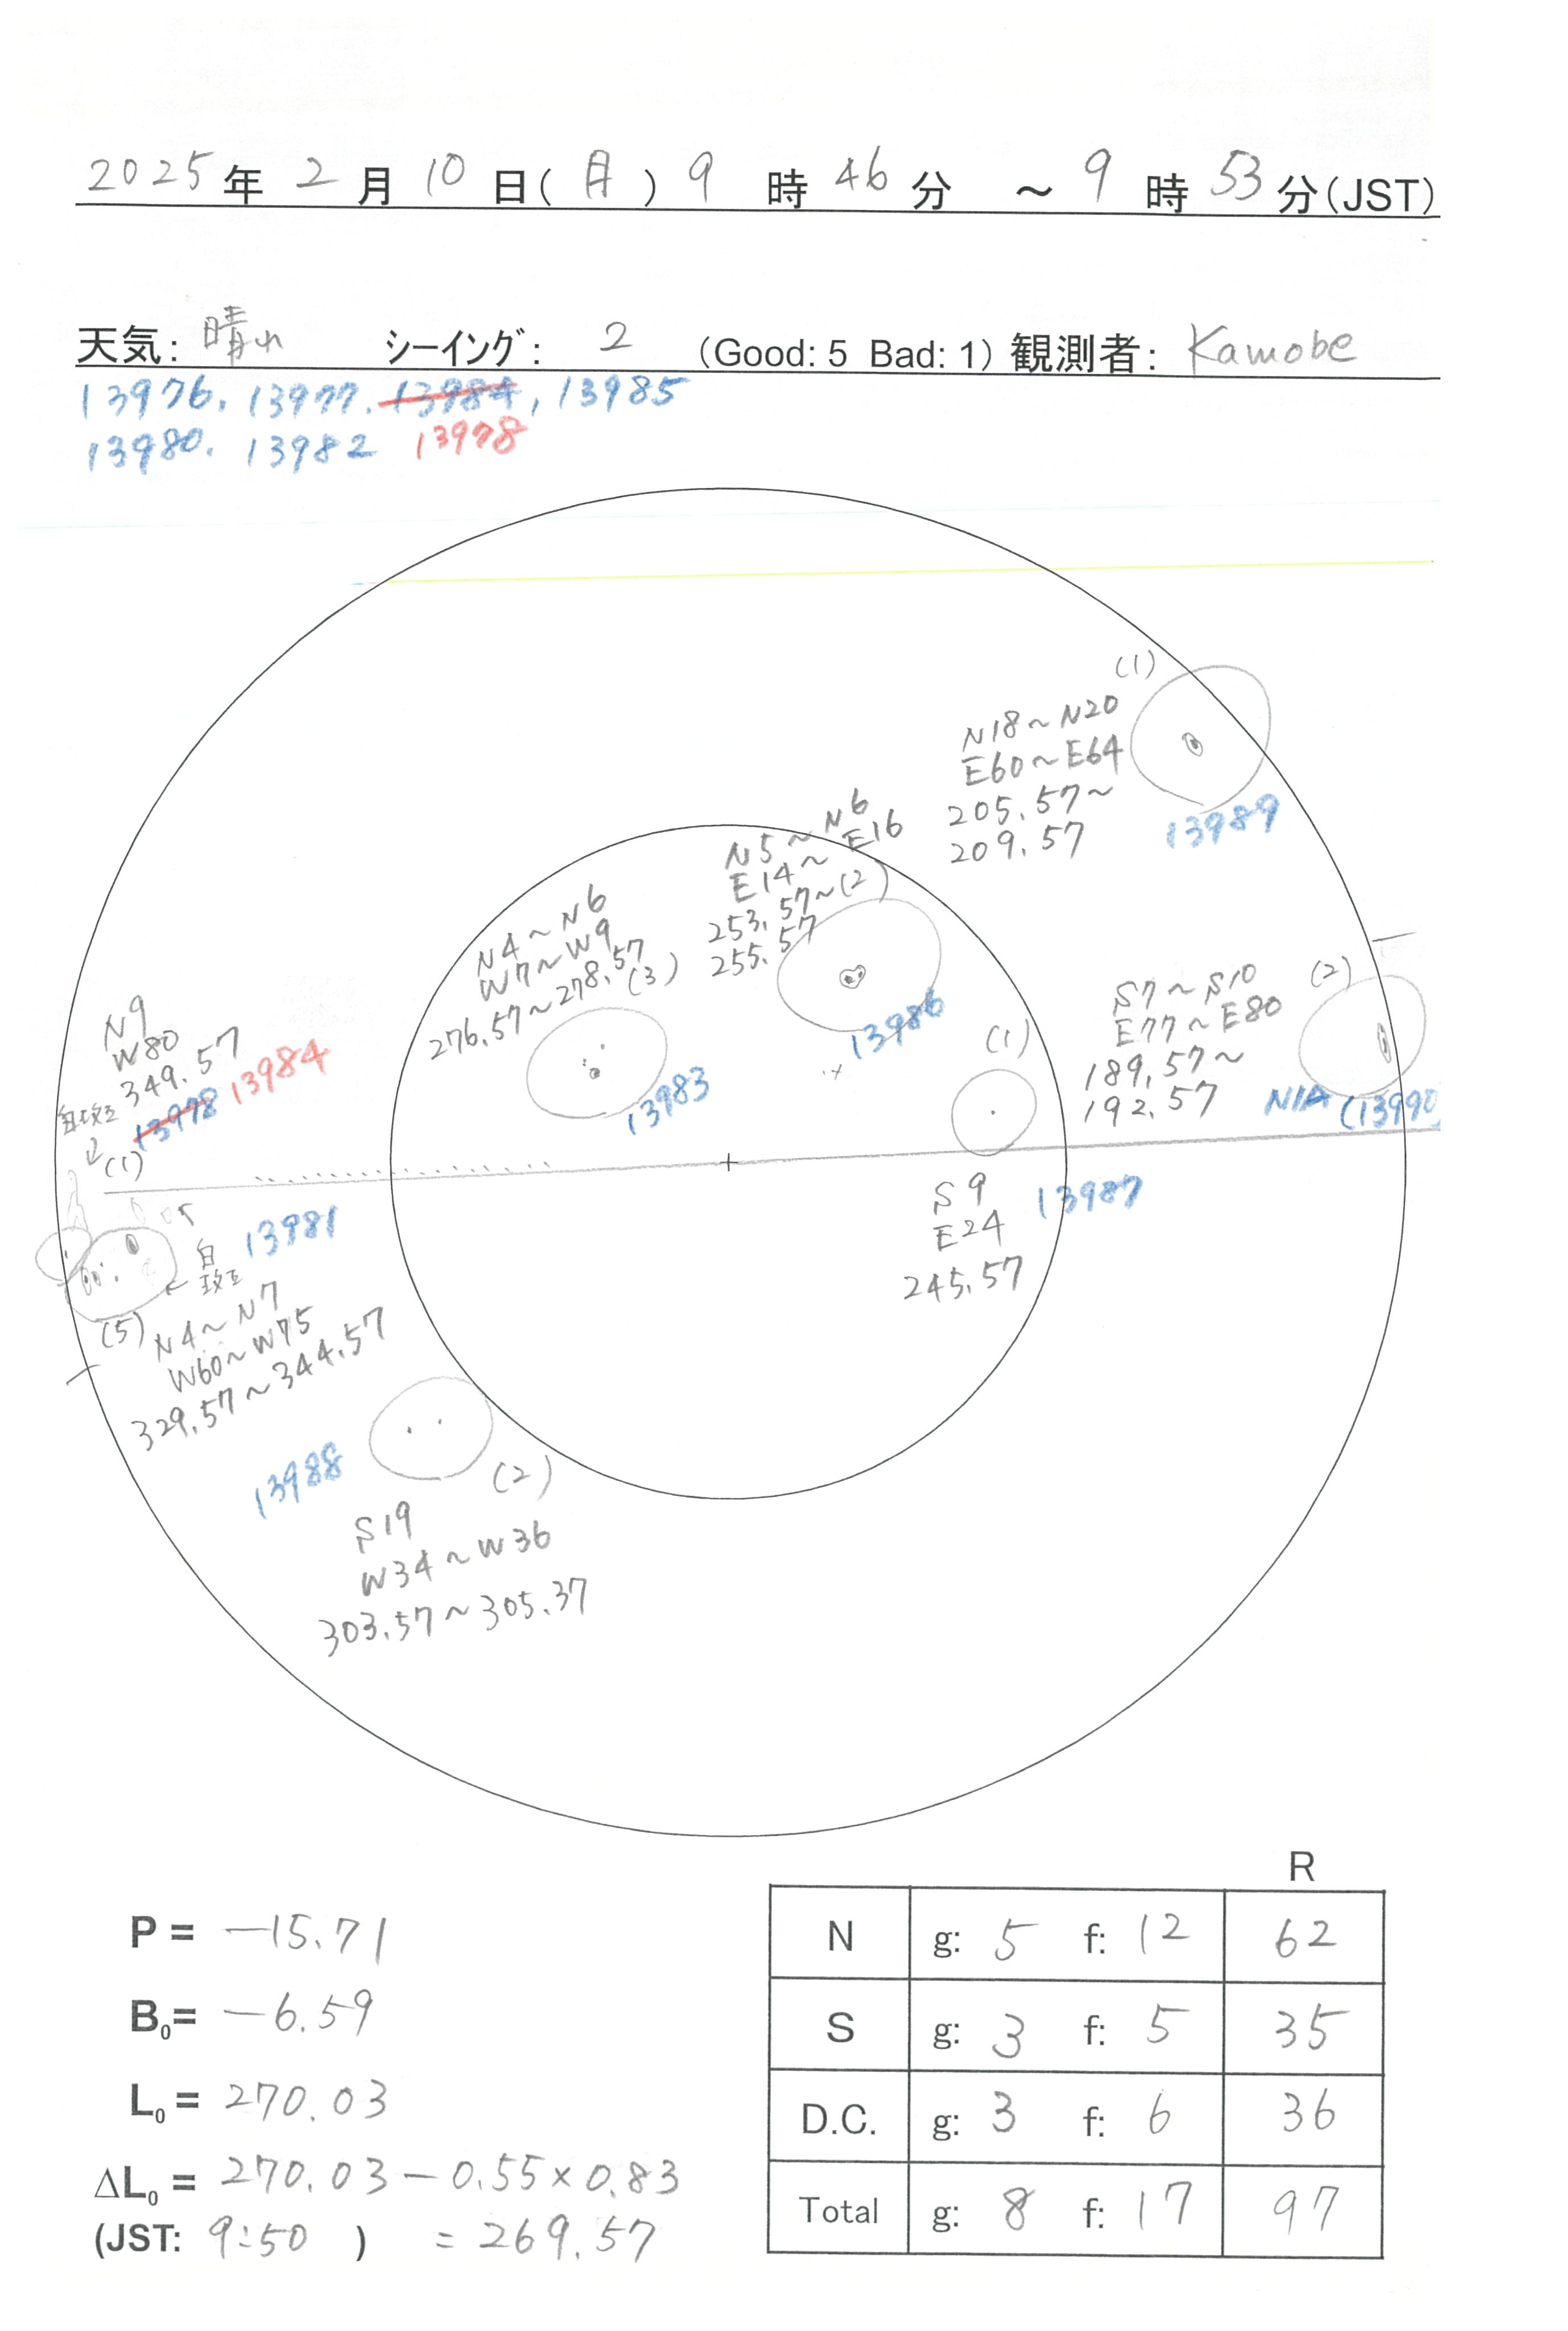 2025年 2月 10日(月) 9時 46分 ～9時 53分(JST)
天気: 晴れ シーイング: 2 (Good: 5 Bad: 1) 観測者: Kamobe
13976. 13977. 13984, 13985
13980. 13982 13978
(1)
N18～N20
E60～E64
205.57～
209.57
13989
N5～N6
E14～E16
253.57～(2)
255.57
13986
N4～N6
W7～W9
276.57～278.57
(3)
13983
(1)
S9
E24
245.57
13987
(2)
S7～S10
E77～E80
189.57～
192.57
N/A (13990)
N9
W80
349.57
13978 13984
白斑
↓
(1)
13981
白斑
←
(5)
N4～N7
W60～W75
329.57～344.57
13988
(2)
S19
W34～W36
303.57～305.37
P = －15.71
B0= －6.59
L0 = 270.03
ΔL0 = 270.03－0.55×0.83
(JST: 9:50 ) = 269.57
R
N g: 5 f: 12 62
S g: 3 f: 5 35
D.C. g: 3 f: 6 36
Total g: 8 f: 17 97